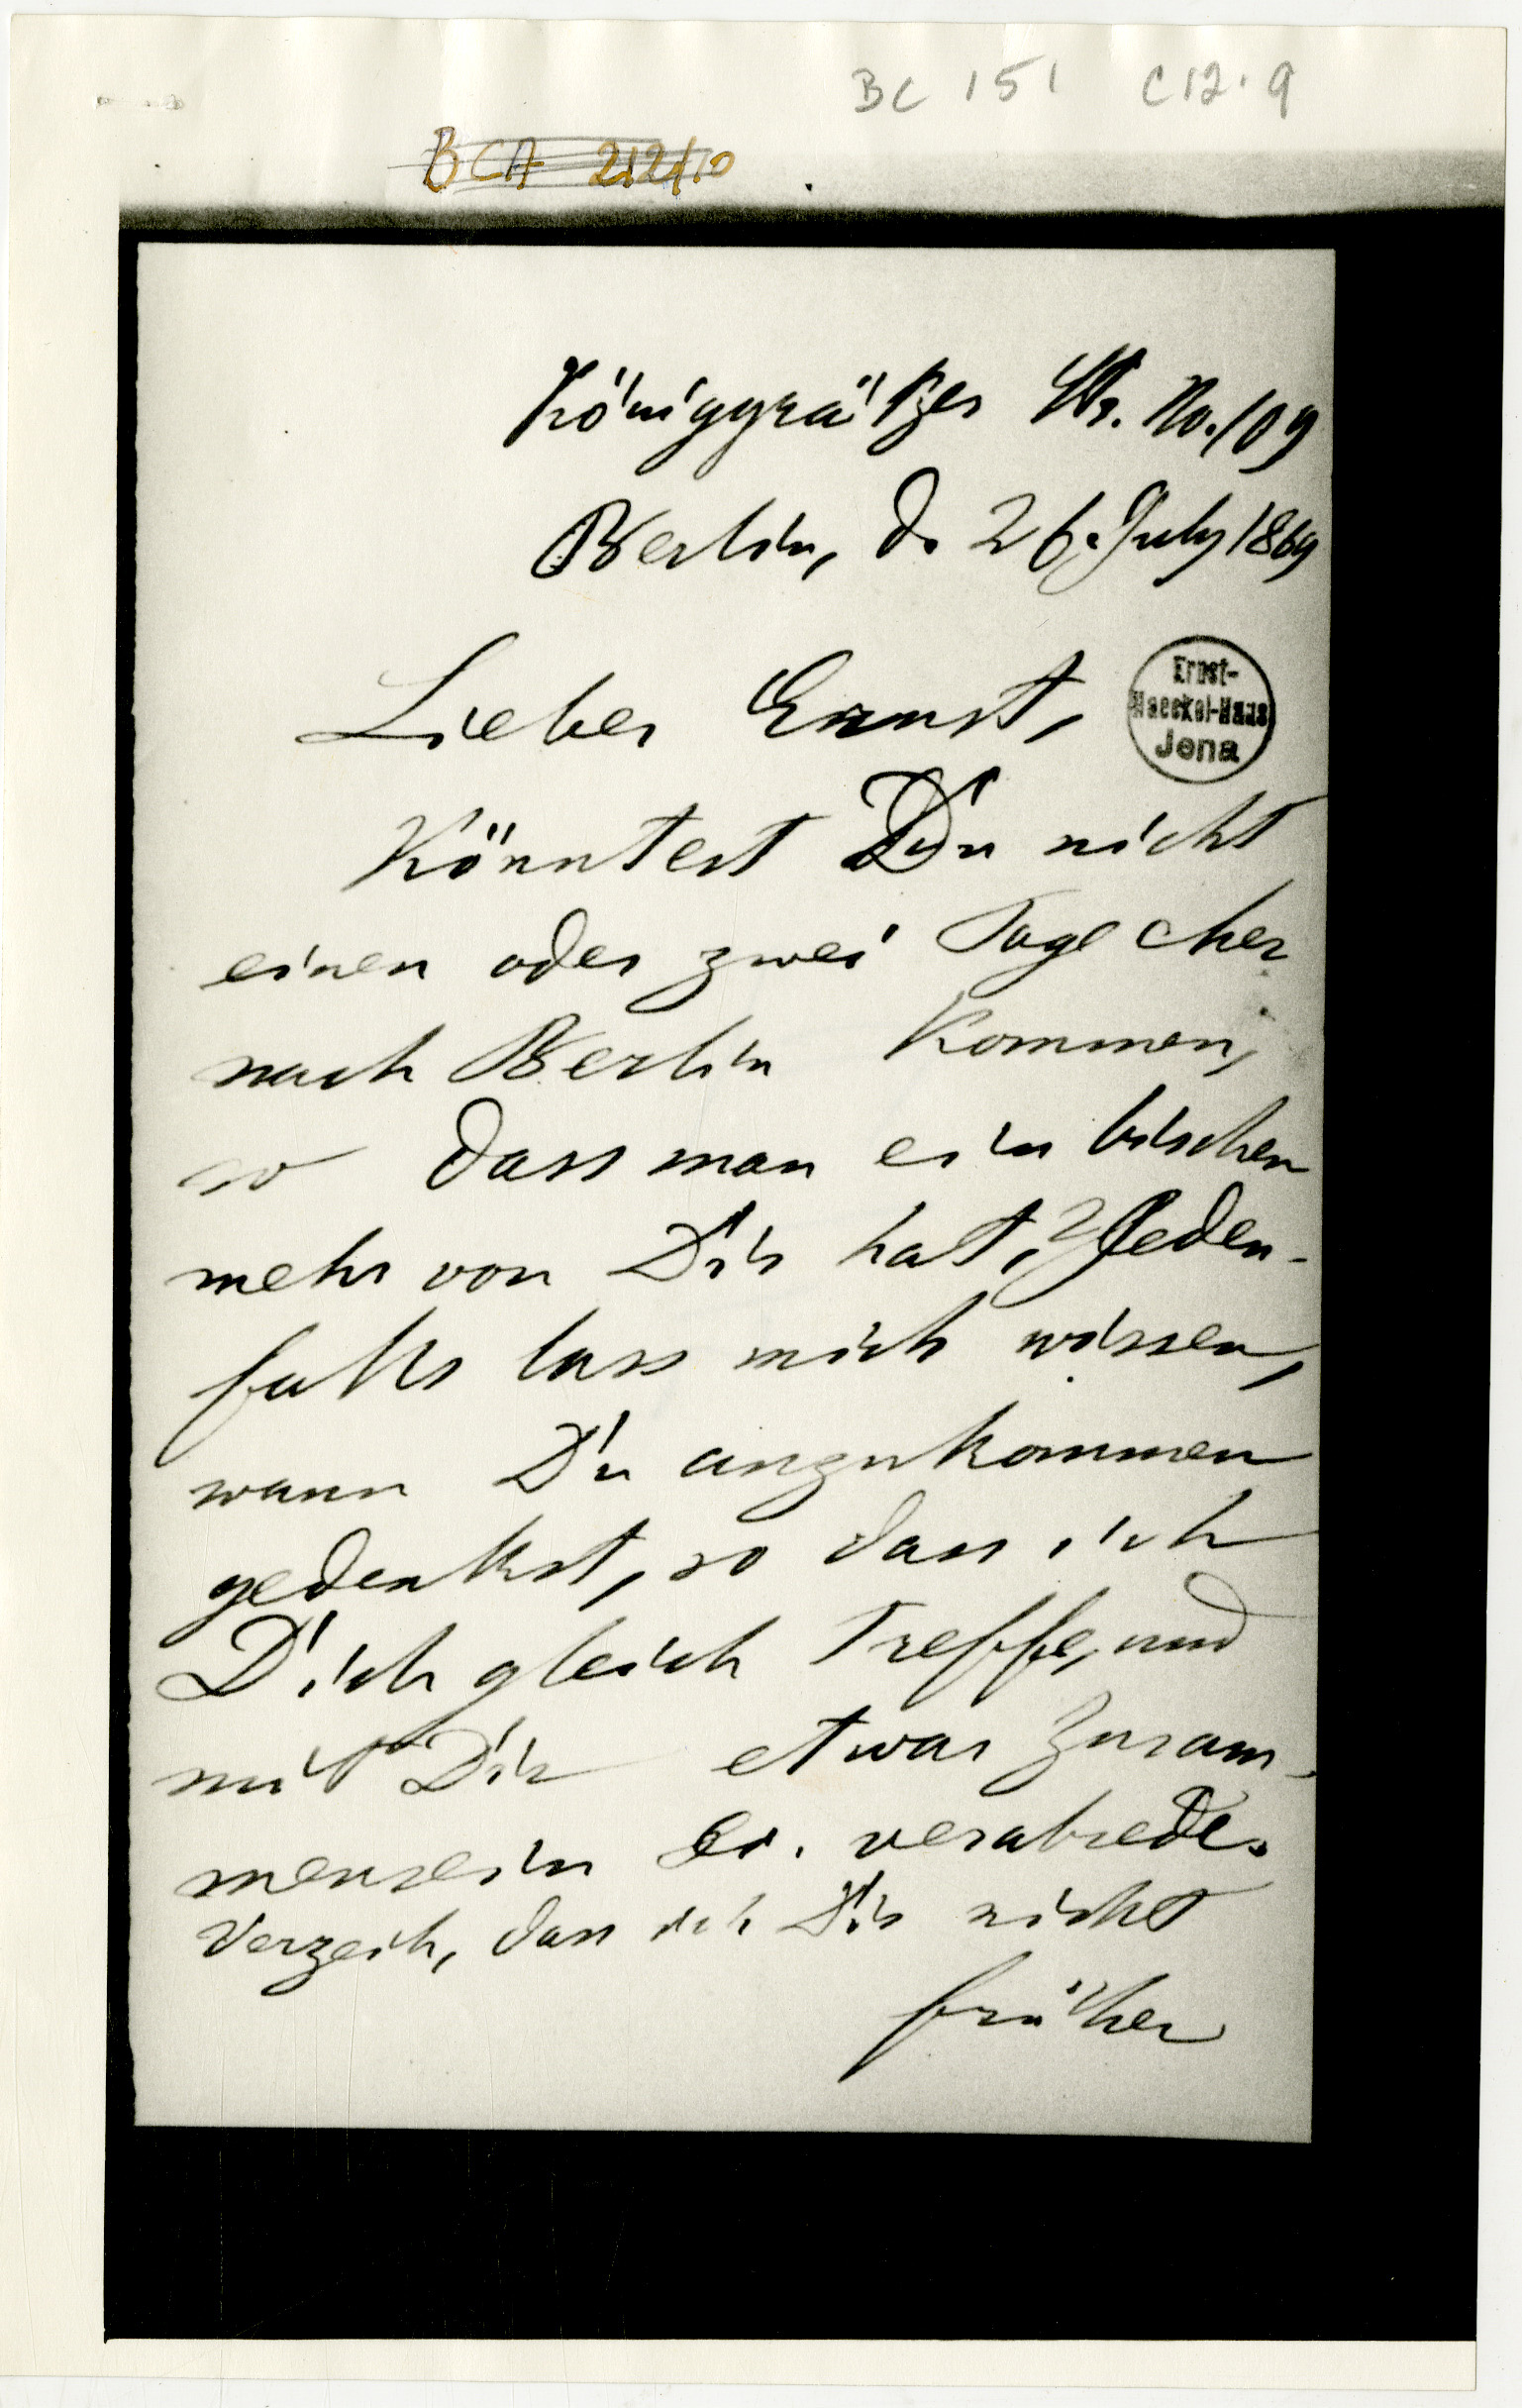 BC 151 C12.9
BCA 212/10
Königgrätzer Str. No. 109
Berlin, d. 26. July 1869
Lieber Ernst,
Ernst-
Haeckel-Haus
Jena
Könntest Du nicht
einen oder zwei Tage eher
nach Berlin kommen,
so dass man ein bischen
mehr von Dir hat? Jeden-
falls lass mich wissen,
wann Du anzukommen
gedenkst, so dass ich
Dich gleich treffe, und
mit Dir etwas Zusam-
mensein verabrede.
Verzeih, dass ich Dir nicht
früher